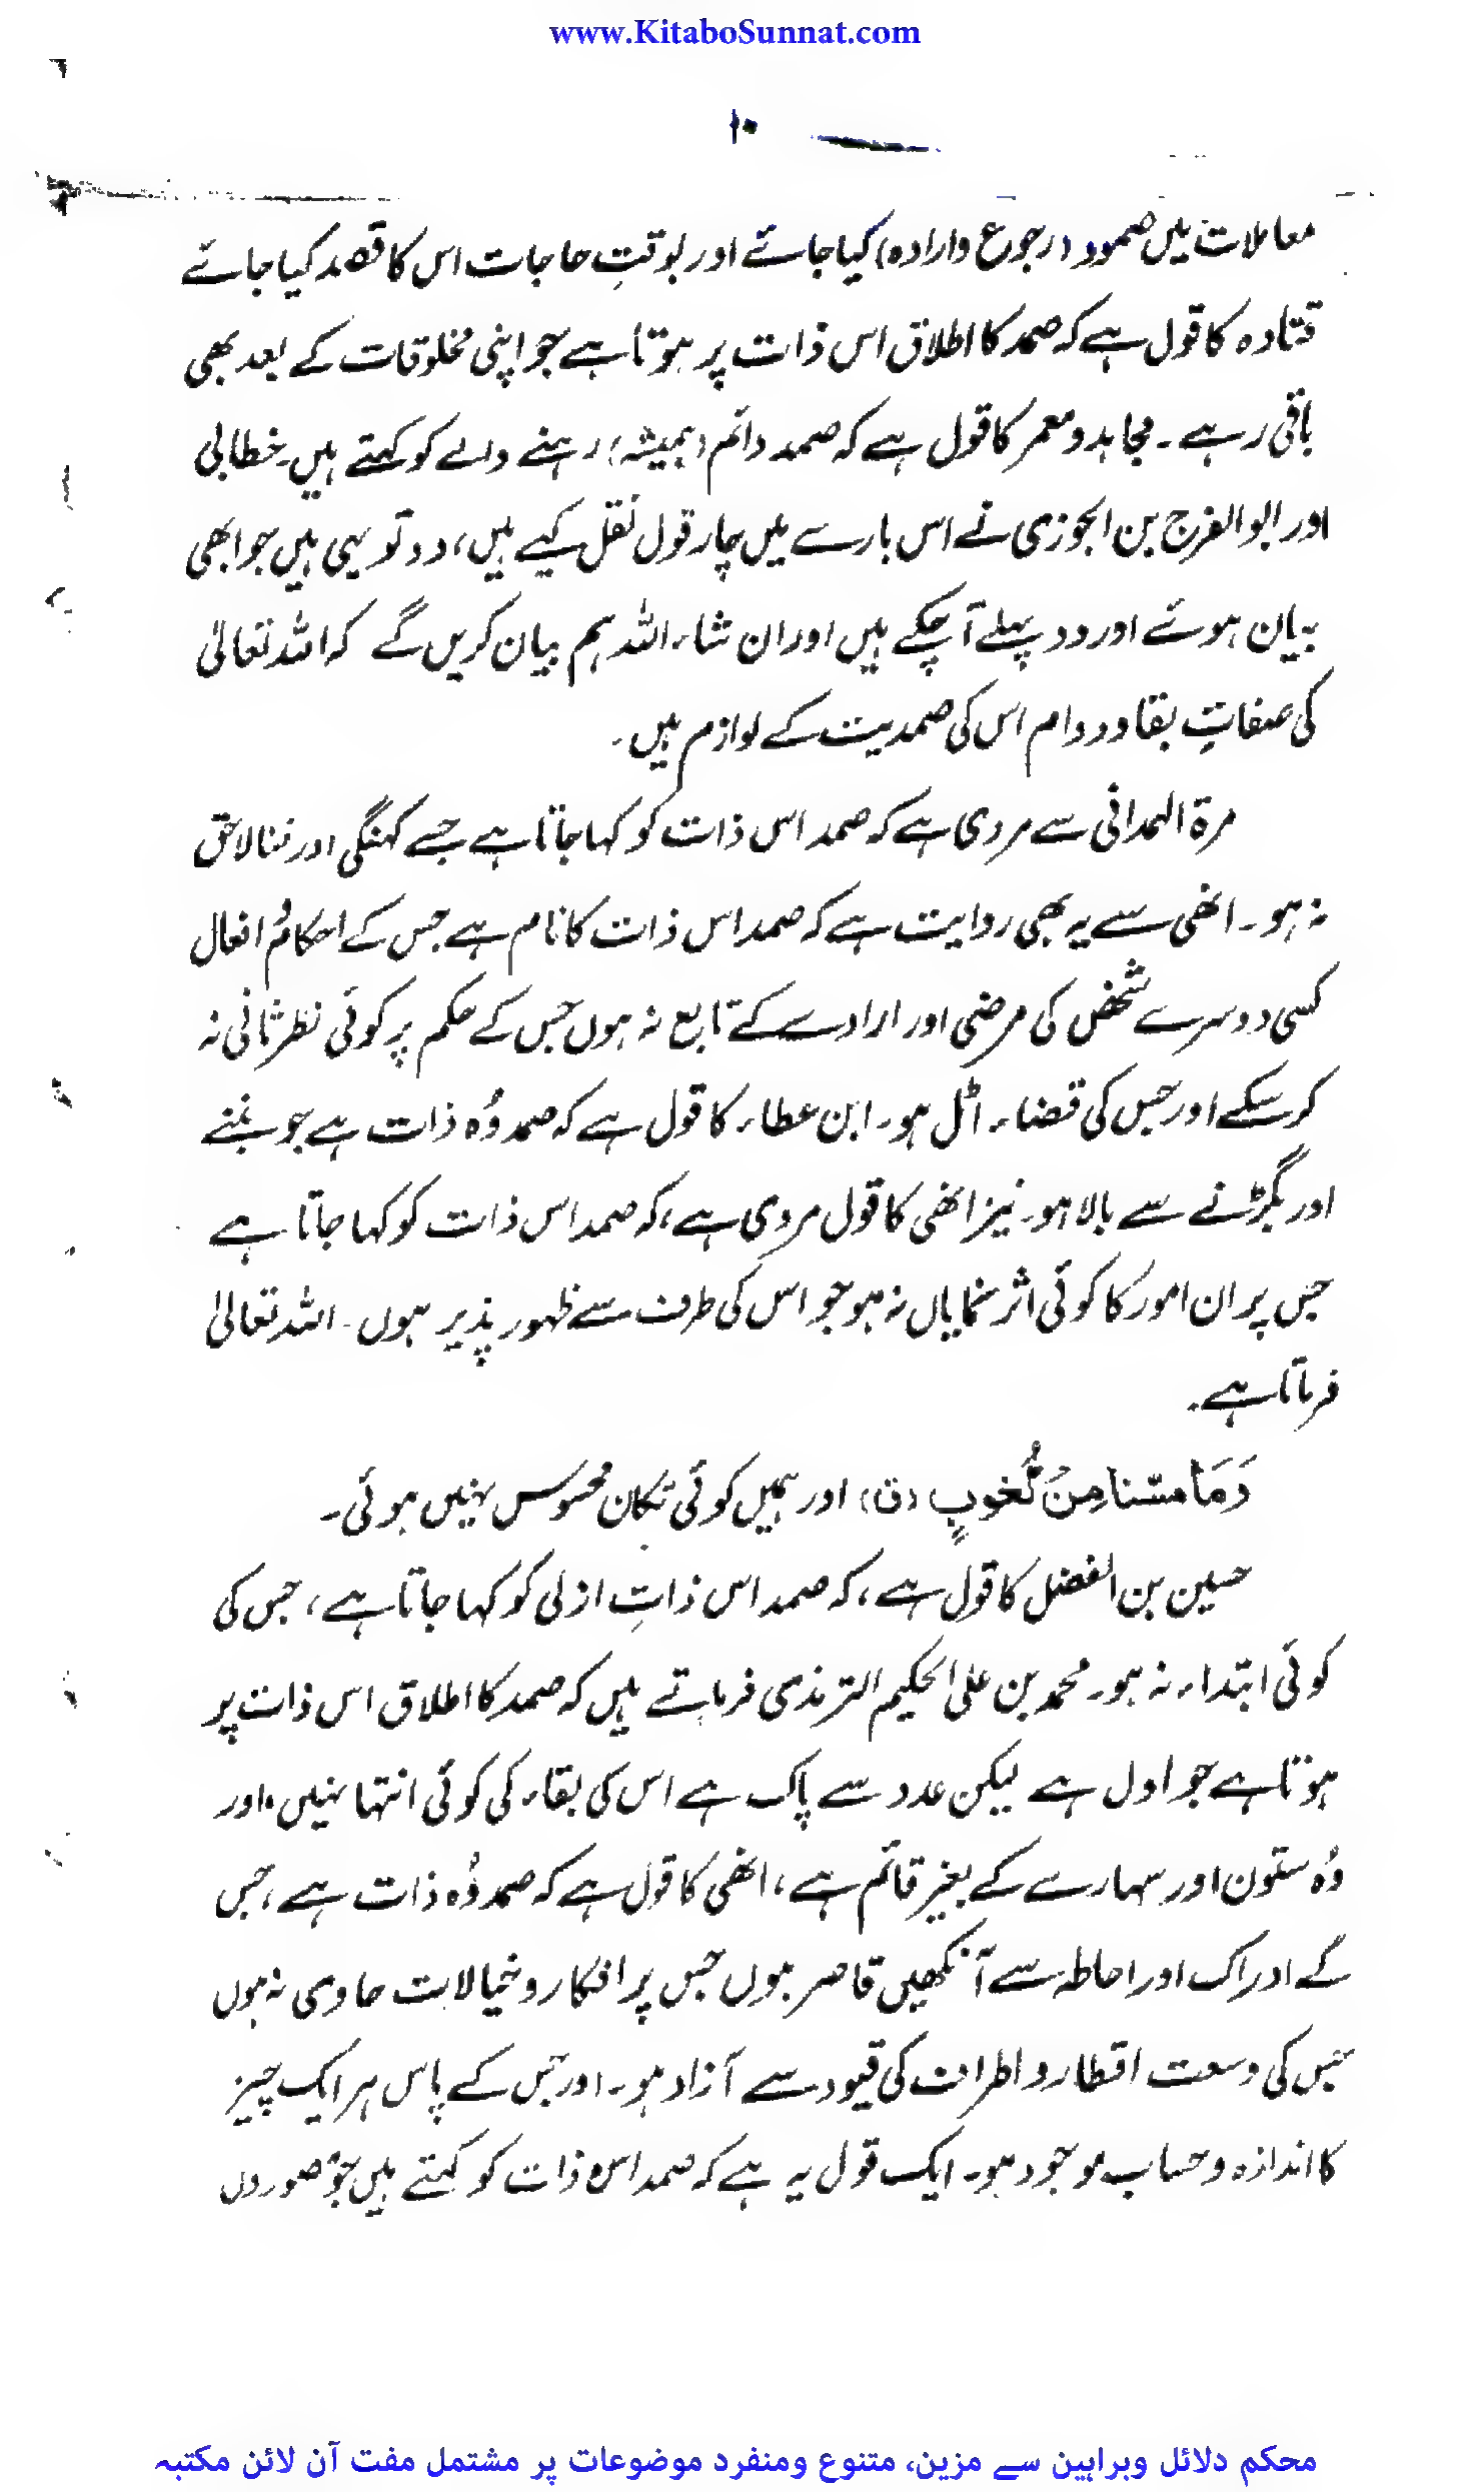 www.KitaboSunnat.com
۱۰
معاملات میں صمود (رجوع وارادہ) کیا جائے اور بوقتِ حاجات اس کا قصد کیا جائے
قتادہ کا قول ہے کہ صمد کا اطلاق اس ذات پر ہوتا ہے جو اپنی مخلوقات کے بعد بھی
باقی رہے ۔ مجاہد و معمر کا قول ہے کہ صمد دائم (ہمیشہ) رہنے والے کو کہتے ہیں۔ خطابی
اور ابوالفرج بن الجوزی نے اس بارے میں چار قول نقل کیے ہیں، دو تو یہی ہیں جو ابھی
بیان ہوئے اور دو پہلے آچکے ہیں اور ان شاء اللہ ہم بیان کریں گے کہ اللہ تعالیٰ
کی صفاتِ بقا ودوام اس کی صمدیت کے لوازم ہیں۔
مرۃ الہمدانی سے مروی ہے کہ صمد اس ذات کو کہا جاتا ہے جسے کہنگی اور فنا لاحق
نہ ہو۔ انھی سے یہ بھی روایت ہے کہ صمد اس ذات کا نام ہے جس کے احکام و افعال
کسی دوسرے شخص کی مرضی اور ارادے کے تابع نہ ہوں جس کے حکم پر کوئی نظرثانی نہ
کر سکے اور جس کی قضاء اٹل ہو۔ ابن عطاء کا قول ہے کہ صمد وُہ ذات ہے جو بننے
اور بگڑنے سے بالا ہو۔ نیز انھی کا قول مروی ہے، کہ صمد اس ذات کو کہا جاتا ہے
جس پر ان امور کا کوئی اثر نمایاں نہ ہو جو اس کی طرف سے ظہور پذیر ہوں۔ اللہ تعالیٰ
فرماتا ہے۔
وَمَا مسّنا مِنْ لُّغوبٍ (ق) اور ہمیں کوئی تکان محسوس نہیں ہوئی۔
حسین بن الفضل کا قول ہے، کہ صمد اس ذاتِ ازلی کو کہا جاتا ہے، جس کی
کوئی ابتداء نہ ہو۔ محمد بن علی الحکیم الترمذی فرماتے ہیں کہ صمد کا اطلاق اس ذات پر
ہوتا ہے جو اول ہے لیکن عدد سے پاک ہے اس کی بقاء کی کوئی انتہا نہیں، اور
وُہ ستون اور سہارے کے بغیر قائم ہے، انھی کا قول ہے کہ صمد وُہ ذات ہے، جس
کے ادراک اور احاطہ سے آنکھیں قاصر ہوں جس پر افکار و خیالات حاوی نہ ہوں
جس کی وسعت اقطار و اطراف کی قیود سے آزاد ہو۔ اور جس کے پاس ہر ایک چیز
کا اندازہ و حساب موجود ہو۔ ایک قول یہ ہے کہ صمد اس ذات کو کہتے ہیں جو صوردں
محکم دلائل وبراہین سے مزین، متنوع ومنفرد موضوعات پر مشتمل مفت آن لائن مکتبہ